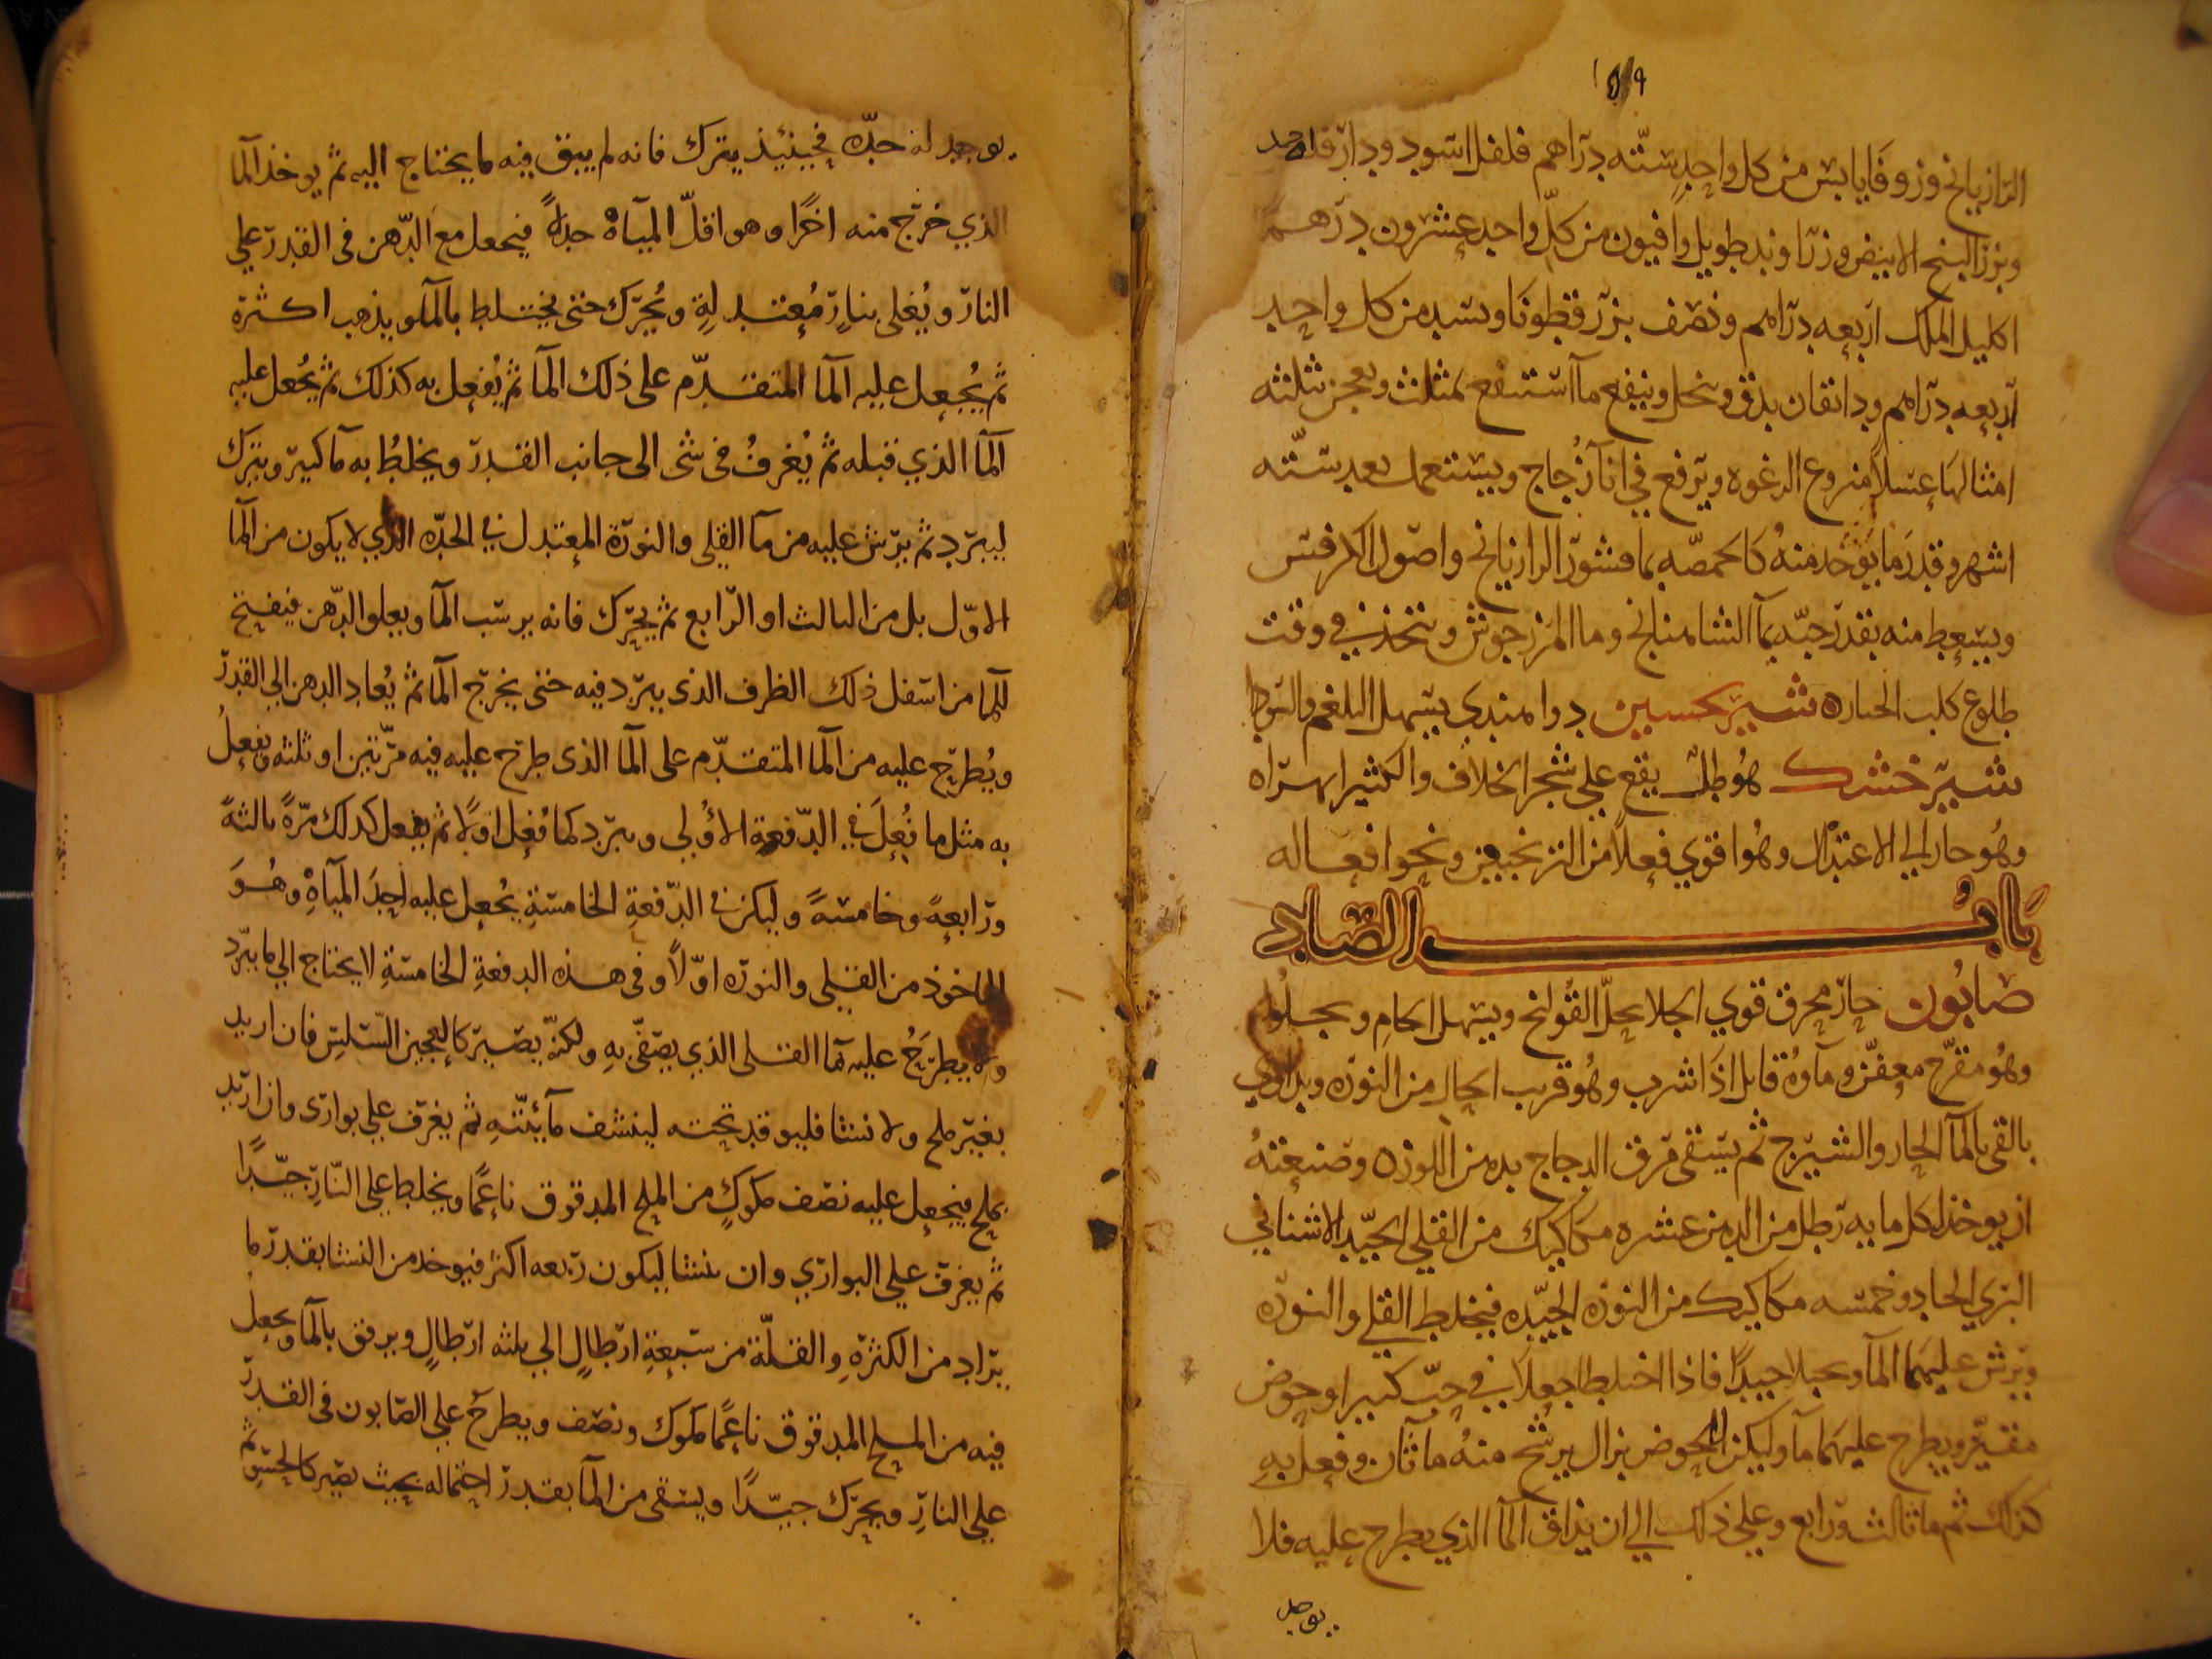 ١٥٩
الرازيانج وزوفا يابس من كل واحد ستته دراهم فلفل اسود ودارفلفل
وبزر البنج الابيض وزراوند طويل وافيون من كل واحد عشرون درهم
اكليل الملك اربعه دراهم ونصف بزر قطونا من كل واحد
اربعه دراهم ودانقان يدق وينخل وينقع ما استنقع بمثلث ويعجن بثلثه
امثالها عسلا منزوع الرغوه ويرفع في انآ زجاج ويستعمل بعد ستته
اشهر وقدر ما يوخد منه كالحمصه بما قشور الرازيانج واصول الكرفس
ويسعط منه بقدر حبه بمآ وما المرزجوش ويتخذ في وقت
طلوع كلب دوا هندي يسهل البلغم والسودا
شيرخشك هو طل يقع علي شجر الخلاف والكثيرا بهراه
وهو حار الي الاعتدال وهو اقوي فعلا من الترنجبين ونحو افعاله
باب الصاد
صابون حار محرق قوي الجلا يحل القولنج ويسهل الخام ويجلوا
وهو مقرح معفن وماوه قاتل اذا شرب وهو قريب الحال من النوره ويداوي
بالقي بالمآ الحار والشيرج ثم يسقي مرق الدجاج وصنعته
ان يوخذ لكل مايه رطل من الدهن عشره مكاكيك من القلي الجيد الاشناني
البري الحاد وخمسه مكاكيك من النوره الجيده فيخلط القلي والنوره
ويرش عليهما المآ ويجبلا جيدا فاذا اختلطا جعلا في حب كبير او حوض
مقير ويطرح عليهما مآ وليكن للحوض بزال يرشح منه ما ثان وفعل به
كذلك ثم ما ثالث ورابع وعلي ذلك الي ان يذاق المآ الذي يطرح عليه فلا
يوجد
يوجد له حده فحينئذ يترك فانه لم يبق فيه ما يحتاج اليه ثم يوخذ المآ
الذي خرج منه اخرا وهو اقل المياه حدة فيجعل مع الدهن في القدر علي
النار ويغلي بنار معتدلة ويحرك حتي يختلط بالمآ ويذهب اكثره
ثم يجعل عليه المآ المتقدم علي ذلك المآ ثم يفعل به كذلك ثم يجعل عليه
المآ الذي قبله ثم يغرف في شي الي جانب القدر ويخلط به مآ كبير ويترك
ليبرد ثم يرش عليه من مآ القلي والنورة المعتدل في الحده الذي لا يكون من المآ
الاول بل من الثالث او الرابع ثم يحرك فانه يرسب المآ ويعلو الدهن فيفتح
للمآ من اسفل ذلك الظرف الذي يبرد فيه حتي يخرج المآ ثم يعاد الدهن الي القدر
ويطرح عليه من المآ المتقدم علي المآ الذي طرح عليه فيه مرتين او ثلثه ويفعل
به مثل ما فعل في الدفعة الاولي ويبرد كما فعل اولا ثم يفعل كذلك مرة ثالثة
ورابعة وخامسة وليكن في الدفعة الخامسة يجعل عليه احد المياه وهو
الماخوذ من القلي والنوره اولا وفي هذه الدفعة الخامسة لا يحتاج الي ما يبرد
ولا يطرح عليه مآ القلي الذي يصفي به ولكنه يصير كالعجين السلس فان اريد
بغير ملح ولا نشا فليوقد تحته لينشف مآئيته ثم يغرف علي بواري وان اريد
بملح فيجعل عليه نصف مكوك من الملح المدقوق ناعما ويخلط علي النار جيدا
ثم يغرف علي البواري وان بنشا ليكون ريعه اكثر فيوخد من النشا بقدر ما
يراد من الكثرة والقلة من سبعة ارطال الي ثلثه ارطال ويرقق بالمآ ويجعل
فيه من الملح المدقوق ناعما مكوك ونصف ويطرح علي الصابون في القدر
علي النار ويحرك جيدا ويسقي من المآ بقدر احتماله بحيث يصير كالحسو ثم